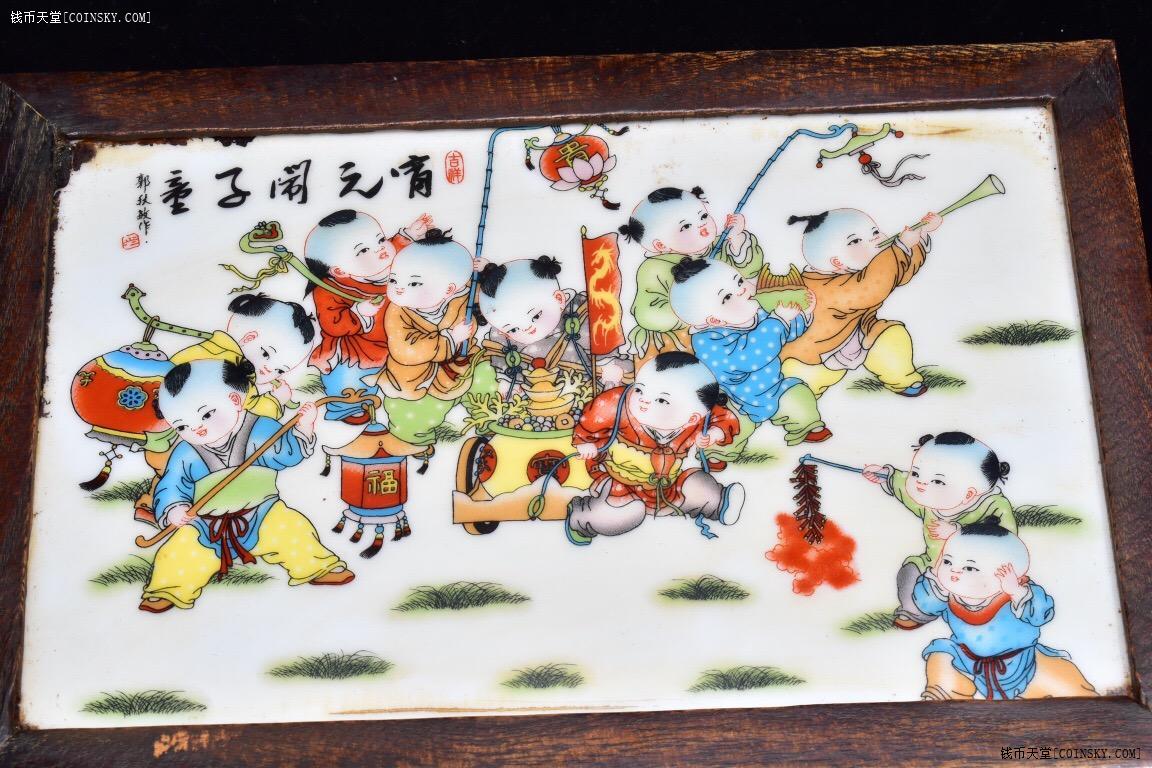 钱币天堂[COINSKY.COM]
吉祥
童子闹元宵
贵
子
福
钱币天堂[COINSKY.COM]